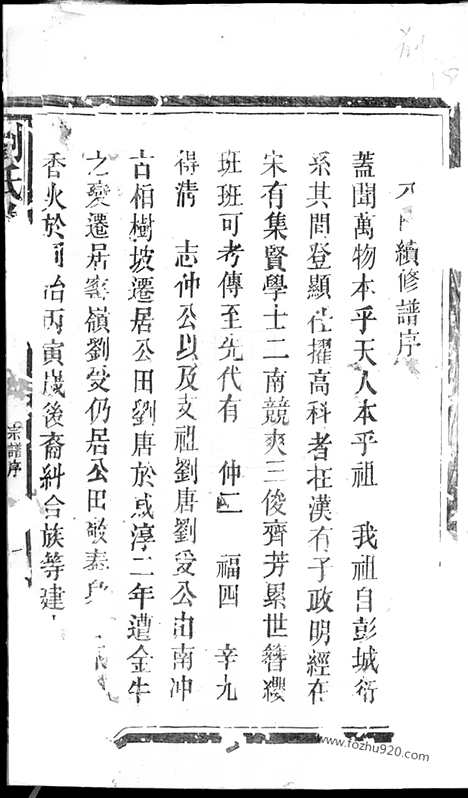 續修譜序
蓋聞萬物本乎天人本乎祖 我祖自彭城衍
系其間登顯仕擢高科者在漢有子政明經在
宋有集賢學士二南競爽三俊齊芳累世簪纓
班班可考傳至先代有 仲二 福四 辛九
得清 志仲公以及支祖劉唐劉受公由南冲
古柏樹坡遷居公田劉唐於咸淳二年遭金牛
之變遷居 嶺劉受仍居公田
香火於同治丙寅歲後裔糾合族等建
劉氏
宗譜序
一
www.fozhu920.com